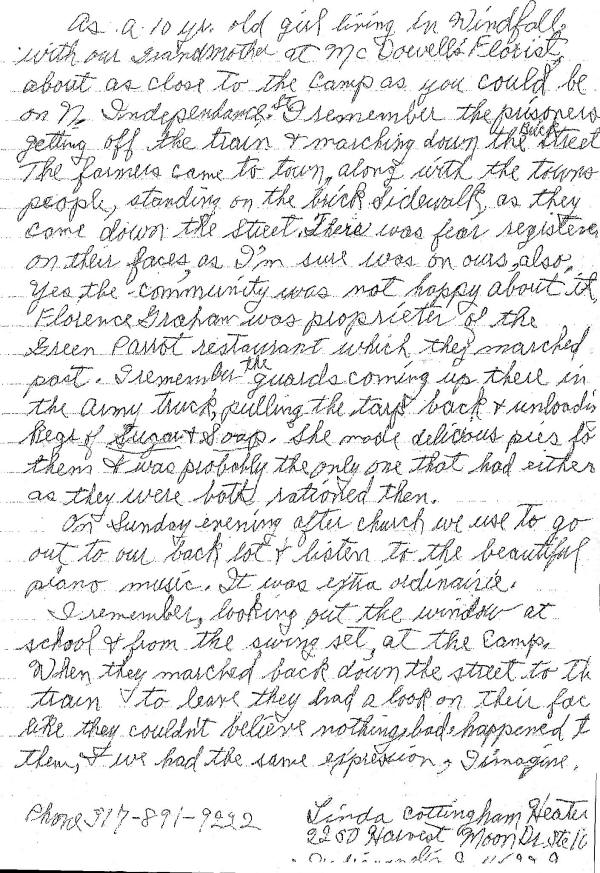 As a 10 yr. old girl living in Windfall,
with our Grandmother at Mc Dowell's Florist,
about as close to the camp as you could be
on N. Independance St I remember the prisoners
getting off the train & marching down the Brick street
The farmers came to town, along with the towns
people, standing on the brick sidewalk, as they
came down the street. There was fear registere
on their faces, as I'm sure was on ours, also.
Yes, the community was not happy about it,
Florence Graham was proprieter of the
Green Parrot restaurant which they marched
past. I remember the guards coming up there in
the Army truck, pulling the tarp back & unloadin
Kegs of Sugar & Soap. She made delicious pies fo
them & was probably the only one that had either
as they were both rationed then.
On Sunday evening after church we use to go
out to our back lot & listen to the beautiful
piano music. It was extra ordinairie.
I remember, looking out the window at
school & from the swing set, at the Camp.
When they marched back down the street to th
train & to leave they had a look on their fac
like they couldn't believe nothing bad happened t
them, & we had the same expression, I imagine.
Phone 317-891-9222
Linda Cottingham Heater
2250 Harvest Moon Dr. Ste